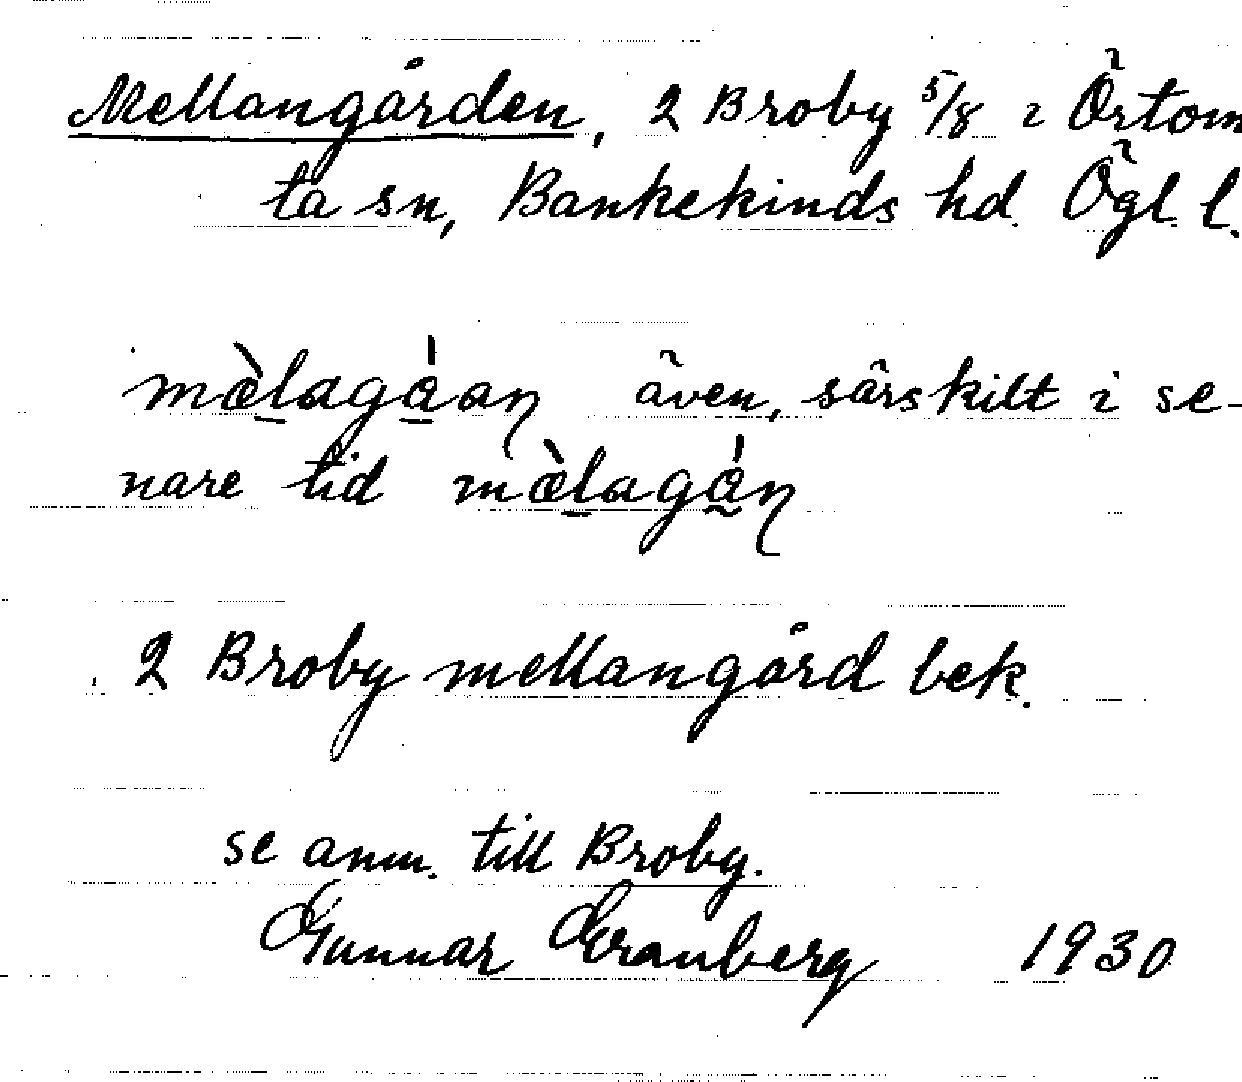 Mellangården, 2 Broby 5/8 i Örtom
ta sn, Bankekinds hd. Ögl. l.
mæ̀lagáan även, särskilt i se-
nare tid mæ̀lagán
2 Broby mellangård bek.
se anm. till Broby.
Gunnar Granberg 1930